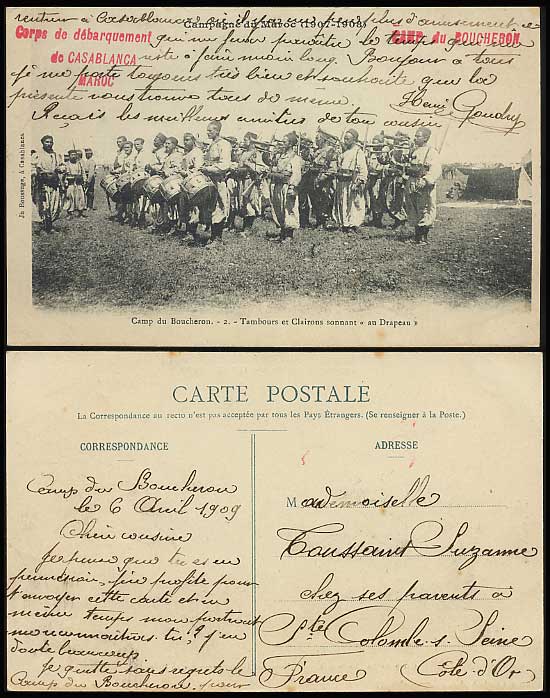 Campagne du Maroc (1907-1908)
rentrer à Casablanca plus d'amusement
qui me fera paraître le temps
moins long. Bonjour à tous
je me porte toujours très bien et souhaite que la
présente vous trouve tous de même. Henri Gaudry
Reçois les meilleures amitiés de ton cousin
Corps de débarquement
de CASABLANCA
MAROC
CAMP du BOUCHERON
Jh Boussuge, à Casablanca
Camp du Boucheron. - 2. - Tambours et Clairons sonnant « au Drapeau »
CARTE POSTALE
La Correspondance au recto n'est pas acceptée par tous les Pays Étrangers. (Se renseigner à la Poste.)
CORRESPONDANCE
Camp du Boucheron
le 6 Avril 1909
Chère cousine
Je pense que tu es en
pension, j'en profite pour
t'envoyer cette carte et en
même temps mon portrait
me reconnaîtras tu? j'en
doute beaucoup
Je quitte sans regrets le
Camp du Boucheron, pour
ADRESSE
Mademoiselle
Toussaint Suzanne
chez ses parents à
Ste Colombe-s-Seine
France (Côte-d'Or)